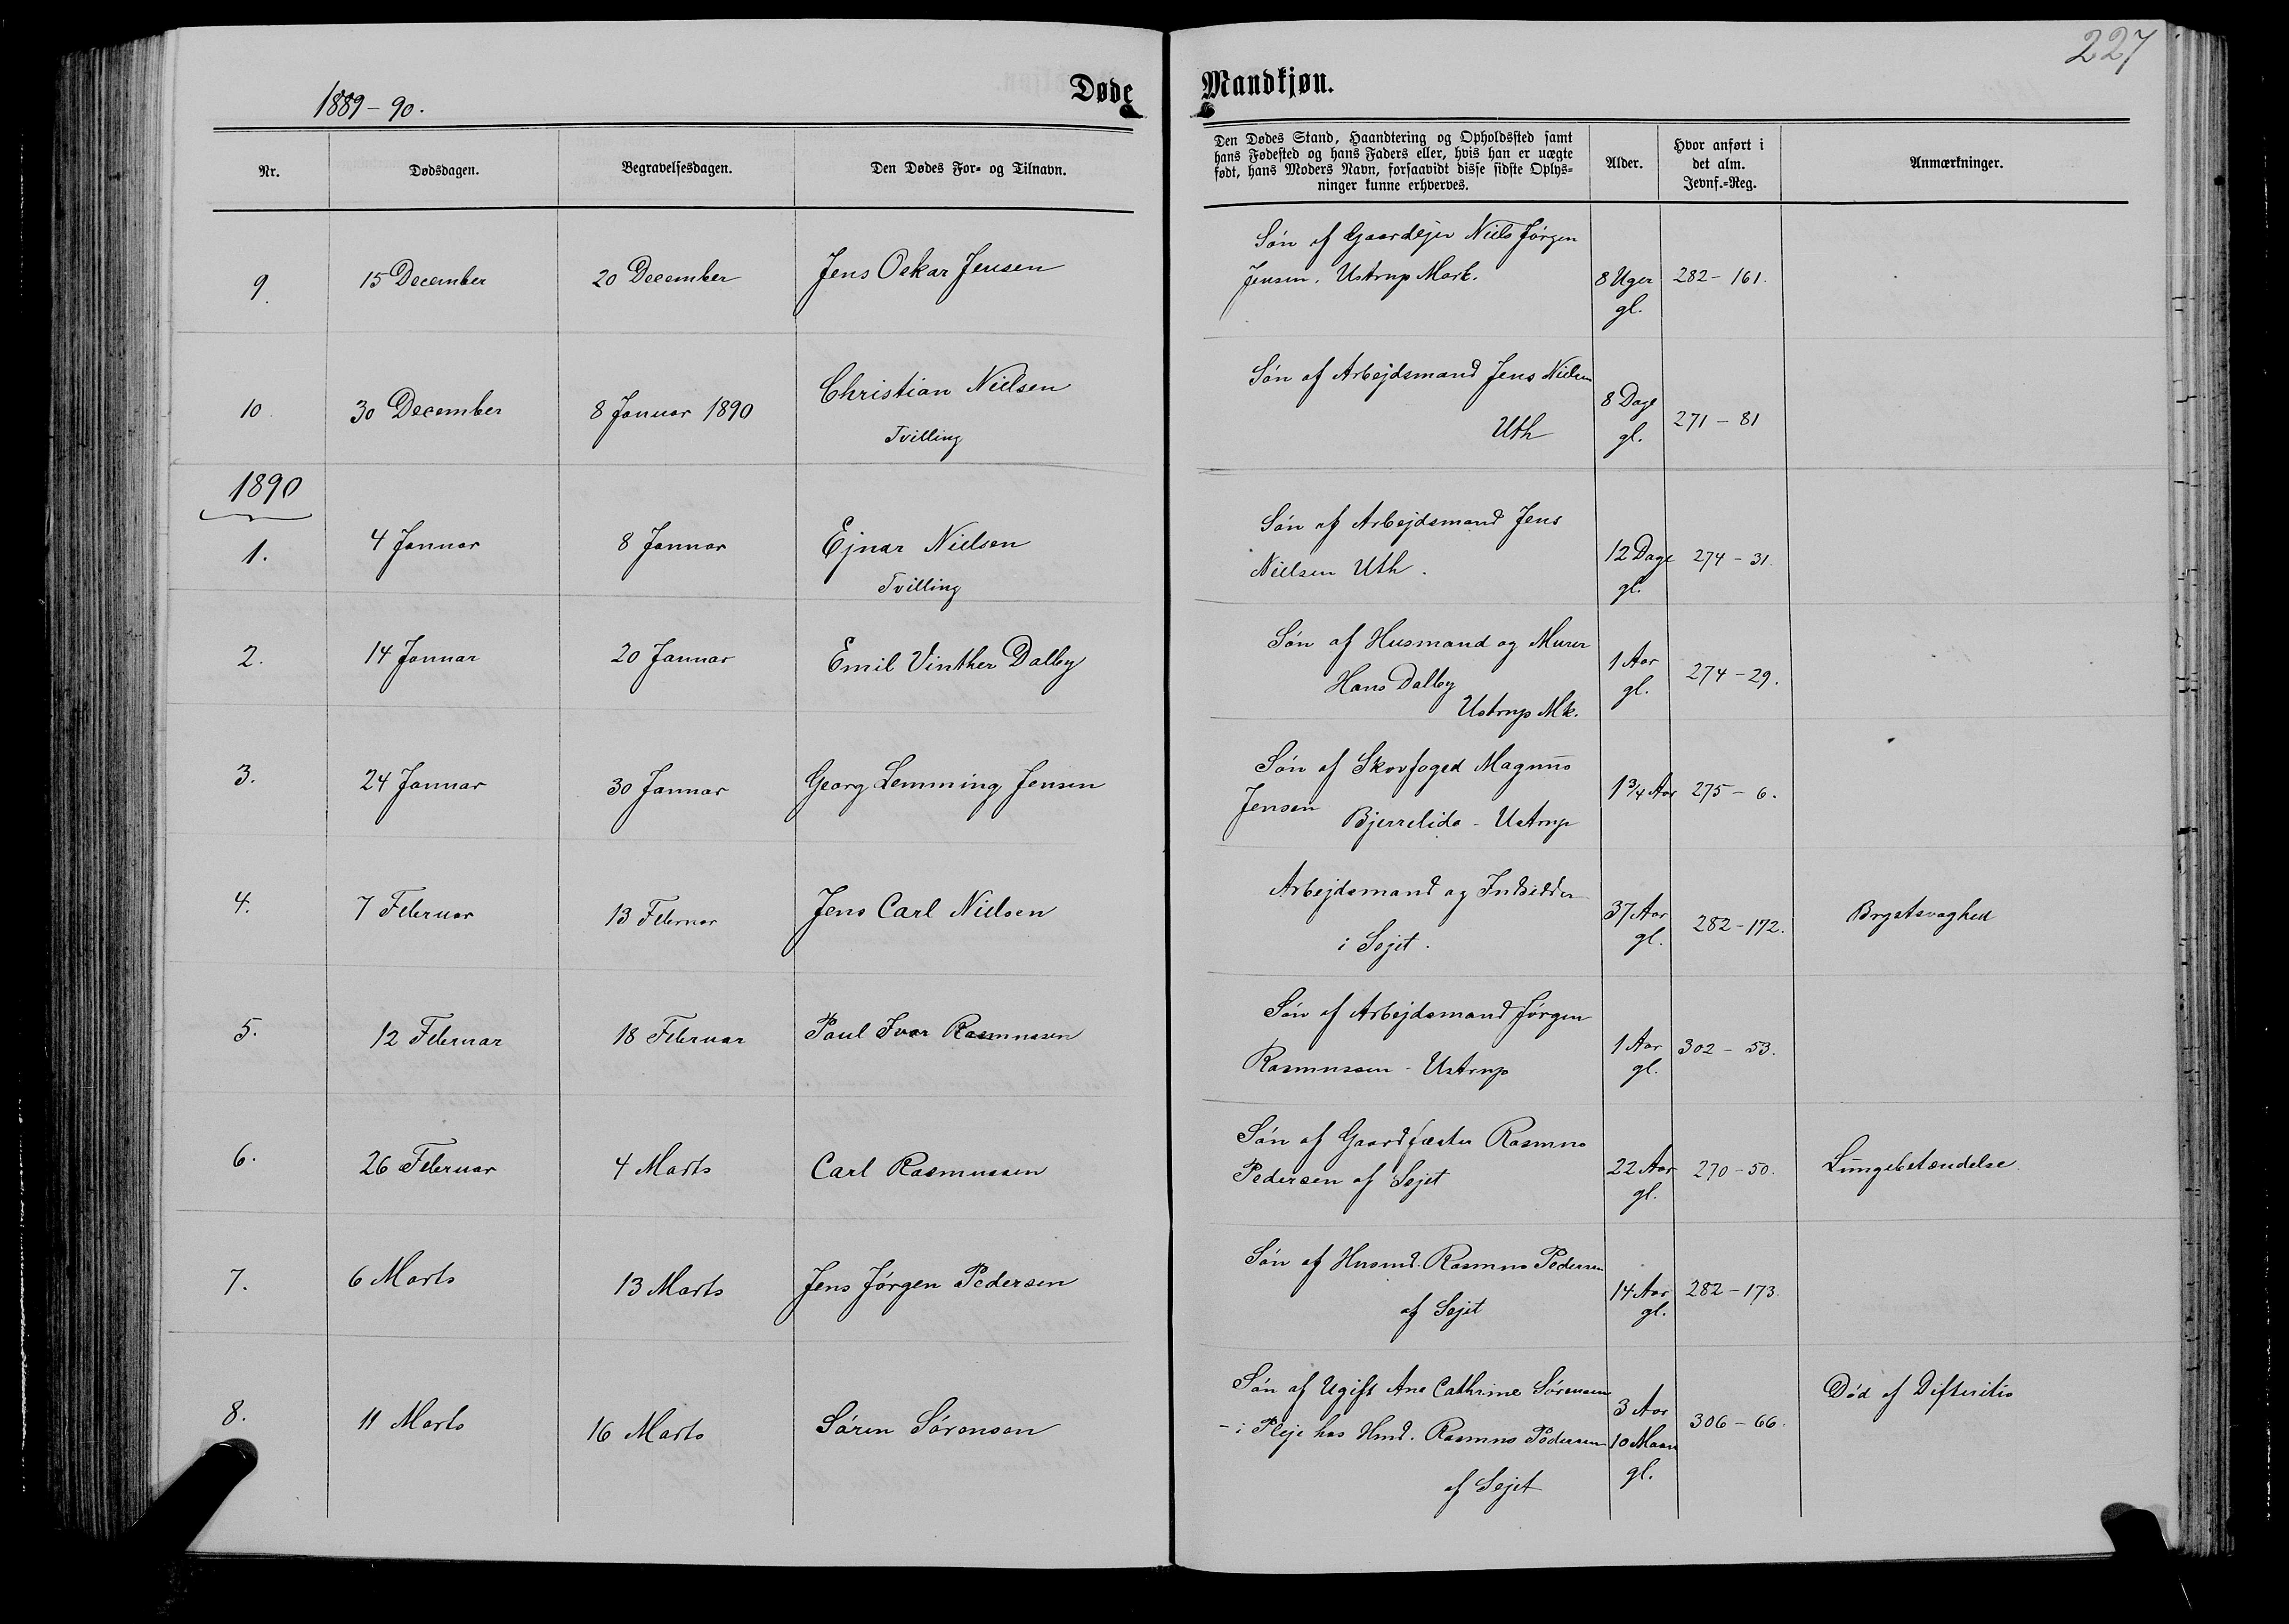 227
1889-90.
Døde Mandkjøn.
Nr. Dødsdagen. Begravelsesdagen. Den Dødes For- og Tilnavn. Den Dødes Stand, Haandtering og Opholdssted samt
hans Fødested og hans Faders eller, hvis han er uægte
født, hans Moders Navn, forsaavidt disse sidste Oplys-
ninger kunne erhverves. Alder. Hvor anført i
det alm.
Jevnf.-Reg. Anmærkninger.
9. 15 December 20 December Jens Oskar Jensen Søn af Gaardejer Niels Jørgen
Jensen. Ustrup Mark. 8 Uger
gl. 282-161.
10. 30 December 8 Januar 1890 Christian Nielsen
Tvilling Søn af Arbejdsmand Jens Nielsen
Uth 8 Dage
gl. 271-81
1890
1. 4 Januar 8 Januar Ejnar Nielsen
Tvilling Søn af Arbejdsmand Jens
Nielsen Uth. 12 Dage
gl. 274-31.
2. 14 Januar 20 Januar Emil Vinther Dalby Søn af Husmand og Murer
Hans Dalby
Ustrup Mk. 1 Aar
gl. 274-29.
3. 24 Januar 30 Januar Georg Lemming Jensen Søn af Skovfoged Magnus
Jensen Bjerrelide - Ustrup 1 3/4 Aar 275-6.
4. 7 Februar 13 Februar Jens Carl Nielsen Arbejdsmand og Indsidder
i Sejet. 37 Aar
gl. 282-172. Brystsvaghed
5. 12 Februar 18 Februar Paul Ivar Rasmussen Søn af Arbejdsmand Jørgen
Rasmussen - Ustrup 1 Aar
gl. 302-53.
6. 26 Februar 4 Marts Carl Rasmussen Søn af Gaardfæster Rasmus
Pedersen af Sejet 22 Aar
gl. 270-50. Lungebetændelse
7. 6 Marts 13 Marts Jens Jørgen Pedersen Søn af Husmd. Rasmus Pedersen
af Sejet 14 Aar
gl. 282-173.
8. 11 Marts 16 Marts Søren Sørensen Søn af Ugift Ane Cathrine Sørensen
- i Pleje hos Hmd. Rasmus Pedersen
af Sejet 3 Aar
10 Maan
gl. 306-66. Død af Difteritis